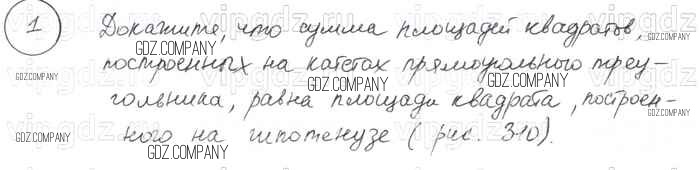 1 Докажите, что сумма площадей квадратов,
построенных на катетах прямоугольного треу-
гольника, равна площади квадрата, построен-
ного на гипотенузе (рис. 310).
GDZ.COMPANY
GDZ.COMPANY
GDZ.COMPANY
GDZ.COMPANY
GDZ.COMPANY
GDZ.COMPANY
GDZ.COMPANY
GDZ.COMPANY
GDZ.COMPANY
GDZ.COMPANY